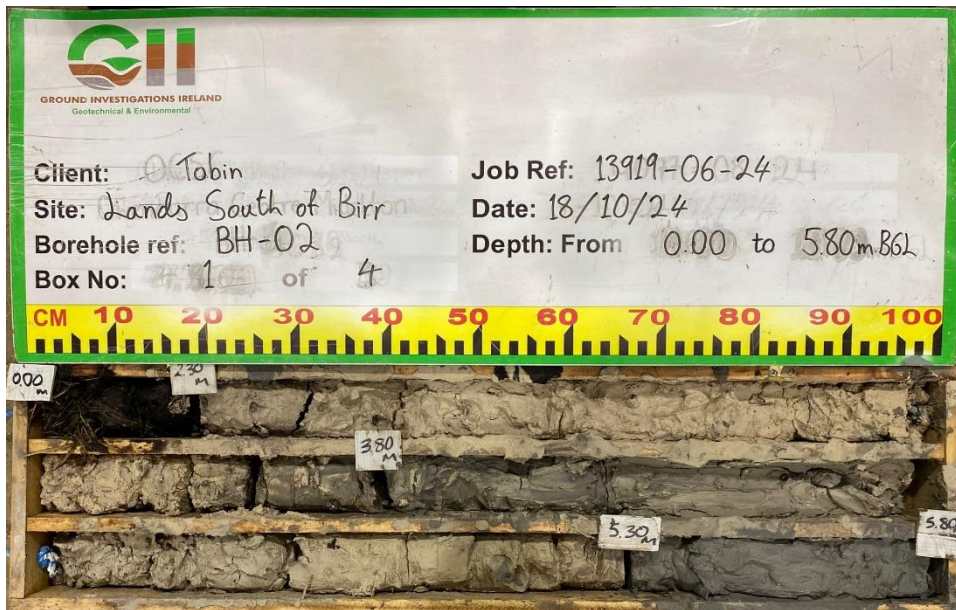 GII
GROUND INVESTIGATIONS IRELAND
Geotechnical & Environmental
Client: Tobin
Site: Lands South of Birr
Borehole ref: BH-02
Box No: 1 of 4
Job Ref: 13919-06-24
Date: 18/10/24
Depth: From 0.00 to 5.80m BGL
CM 10 20 30 40 50 60 70 80 90 100
0.00 m
2.30 m
3.80 m
5.30 m
5.80